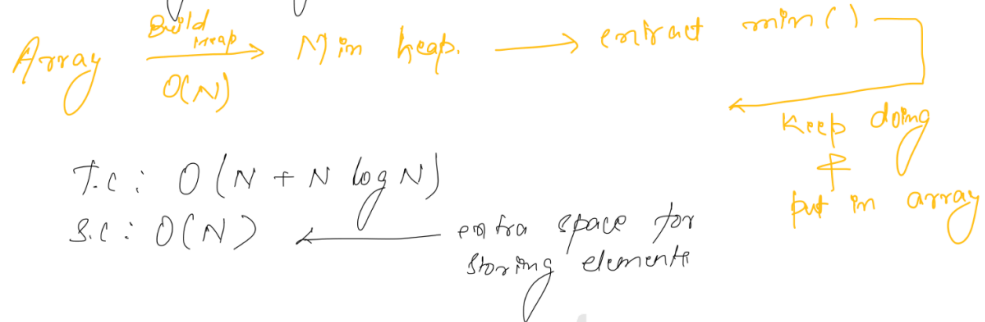 Array Build Heap O(N) Min heap. extract min()
Keep doing
&
put in array
T.C: O(N + N log N)
S.C: O(N) extra space for
storing elements